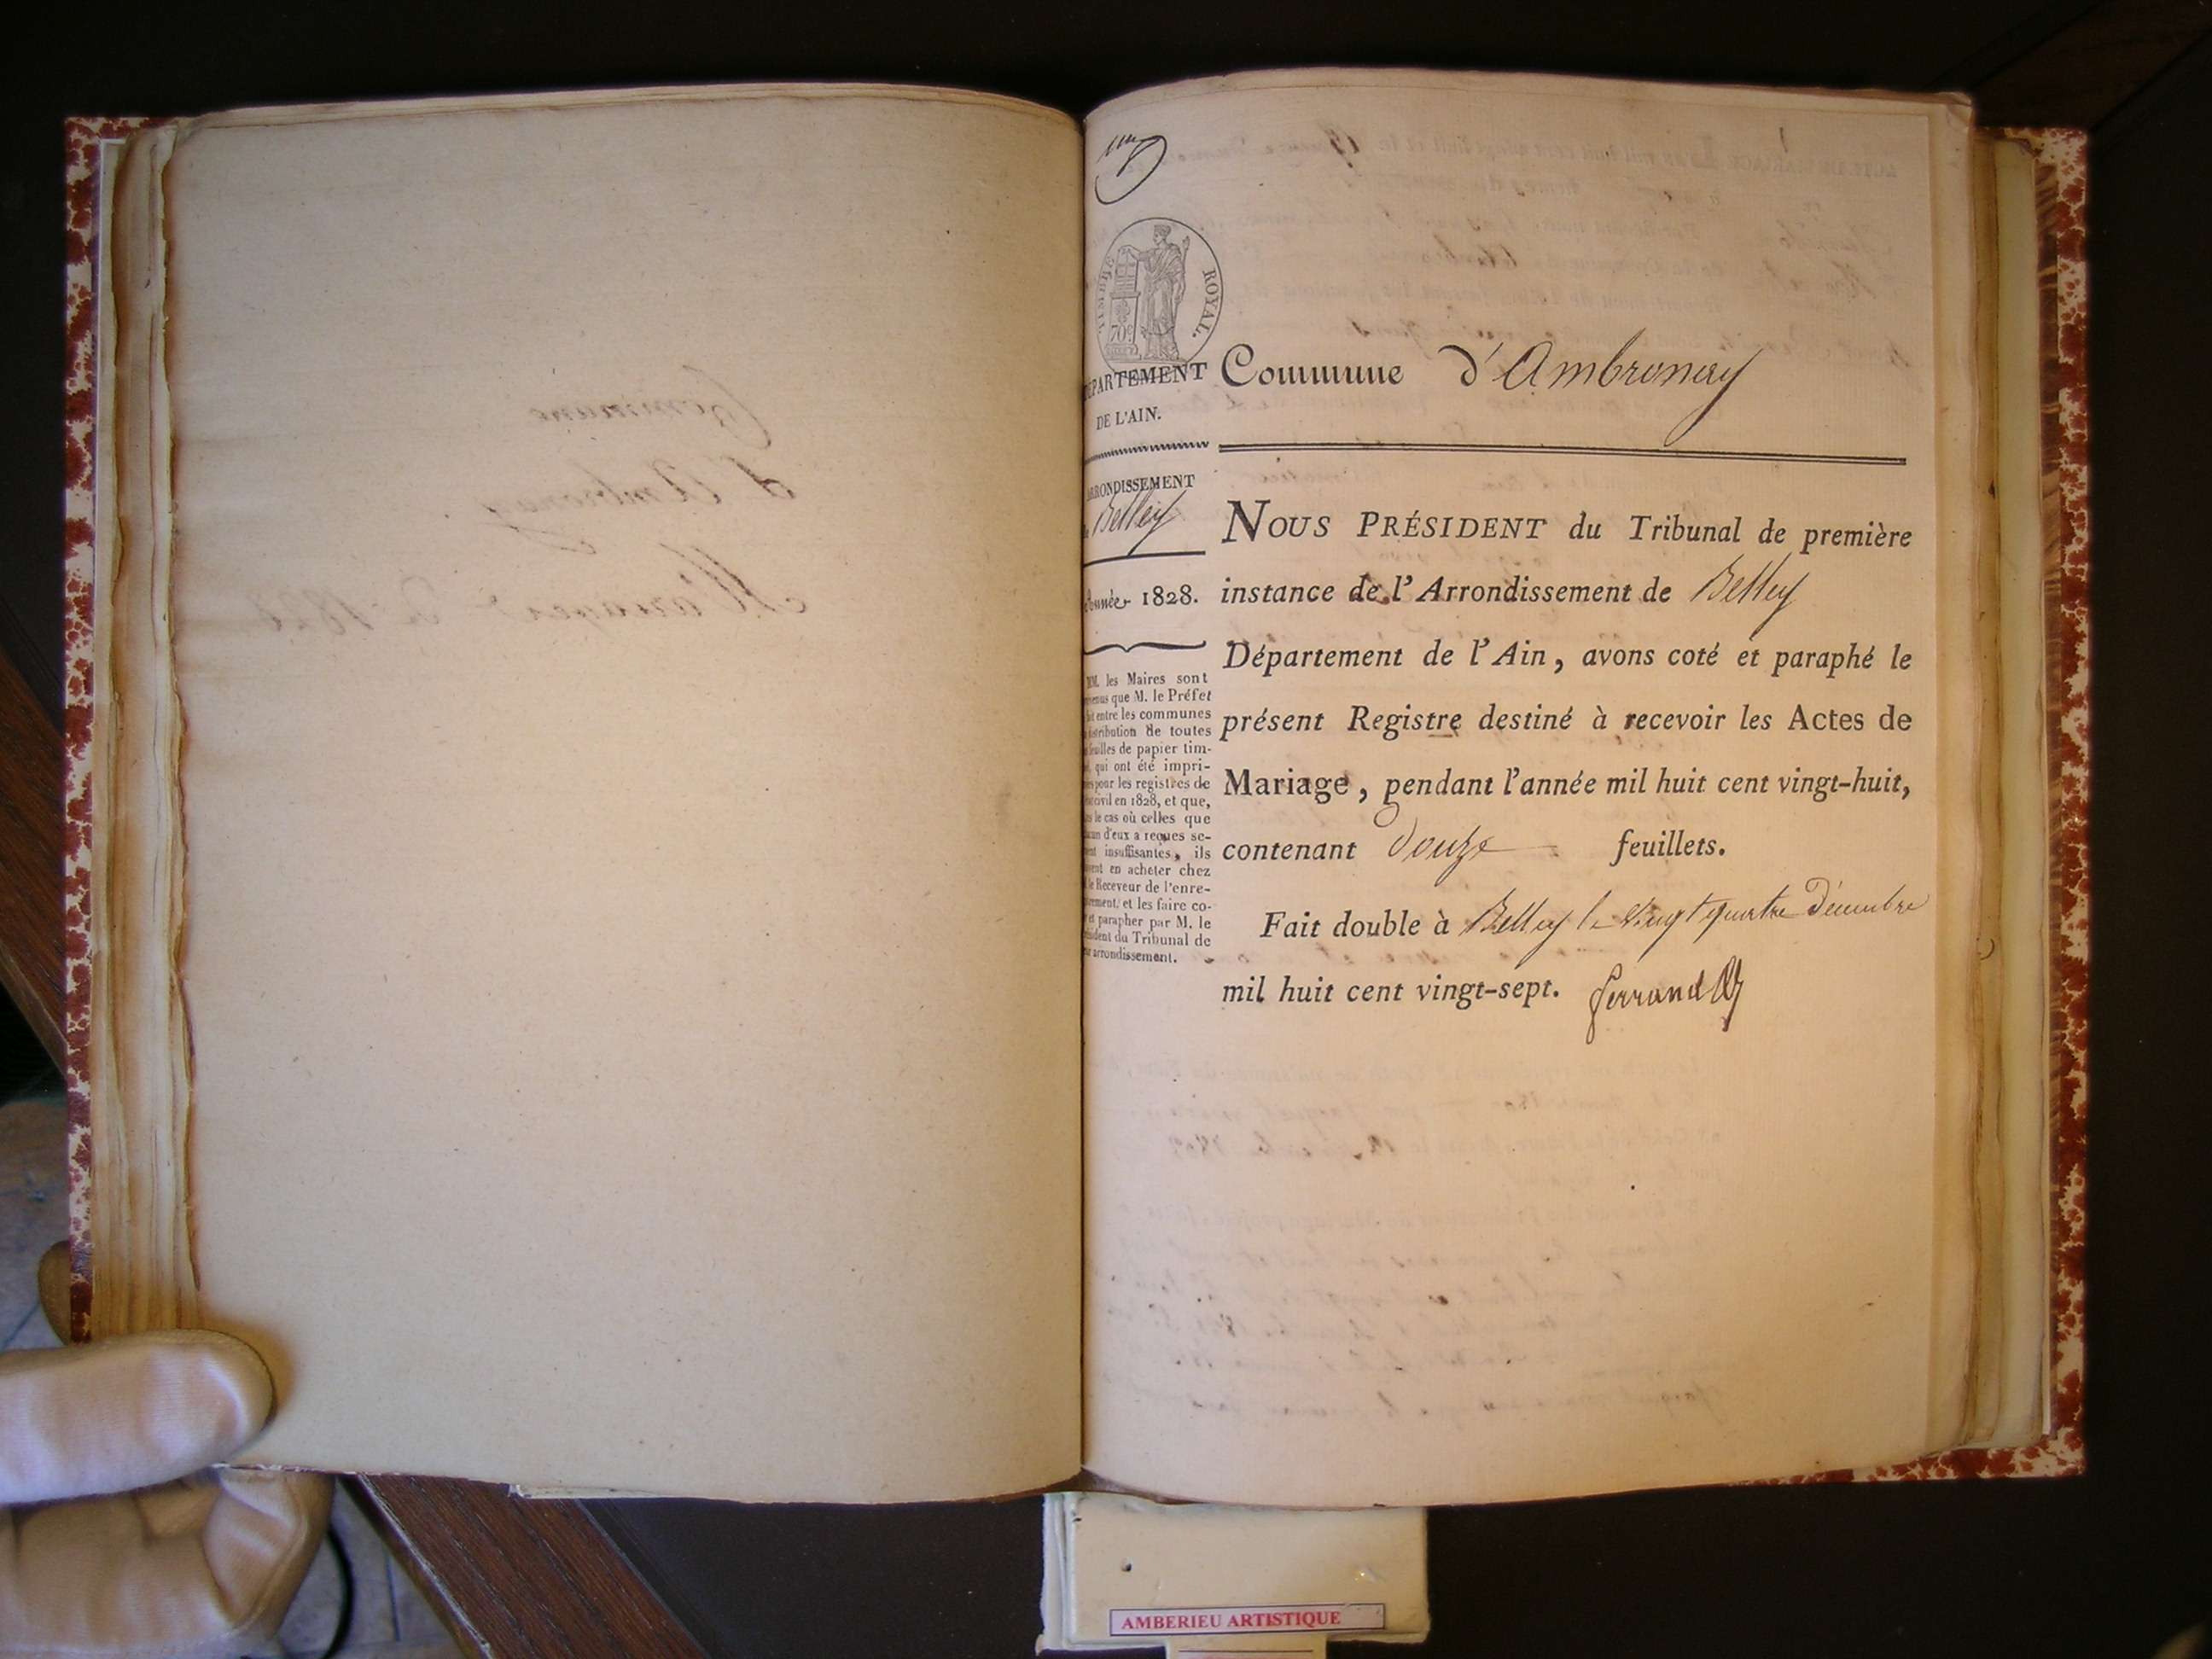 Commune
d'Ambronay
Mariages de 1828
TIMBRE ROYAL.
70c
DÉPARTEMENT
DE L'AIN.
ARRONDISSEMENT
Belley
Année 1828.
MM. les Maires sont
que M. le Préfet
entre les communes
distribution de toutes
feuilles de papier tim-
qui ont été impri-
pour les registres de
civil en 1828, et que,
le cas où celles que
d'eux a reçues se-
insuffisantes, ils
en acheter chez
le Receveur de l'enre-
et les faire co-
et parapher par M. le
Président du Tribunal de
arrondissement.
Commune d'Ambronay
NOUS PRÉSIDENT du Tribunal de première
instance de l'Arrondissement de Belley
Département de l'Ain, avons coté et paraphé le
présent Registre destiné à recevoir les Actes de
Mariage, pendant l'année mil huit cent vingt-huit,
contenant douze feuillets.
Fait double à Belley le vingt quatre Décembre
mil huit cent vingt-sept. Ferrand
AMBERIEU ARTISTIQUE